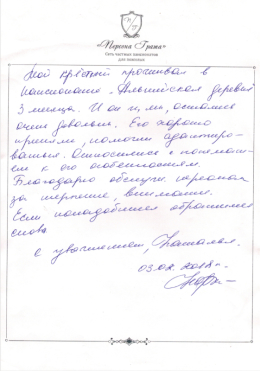 «Перголи Грата»
Сеть частных пансионатов
для пожилых
Мой крёстный проживал в
пансионате "Альпийская деревня
3 месяца. И он и мы, остались
очень довольны. Его хорошо
приняли, помогли адаптиро-
ваться. Относились с понимани-
ем к его особенностям.
Благодарю обслуж. персонал
за терпение, внимание.
Если понадобится обратимся
снова
с уважением, Наталья.